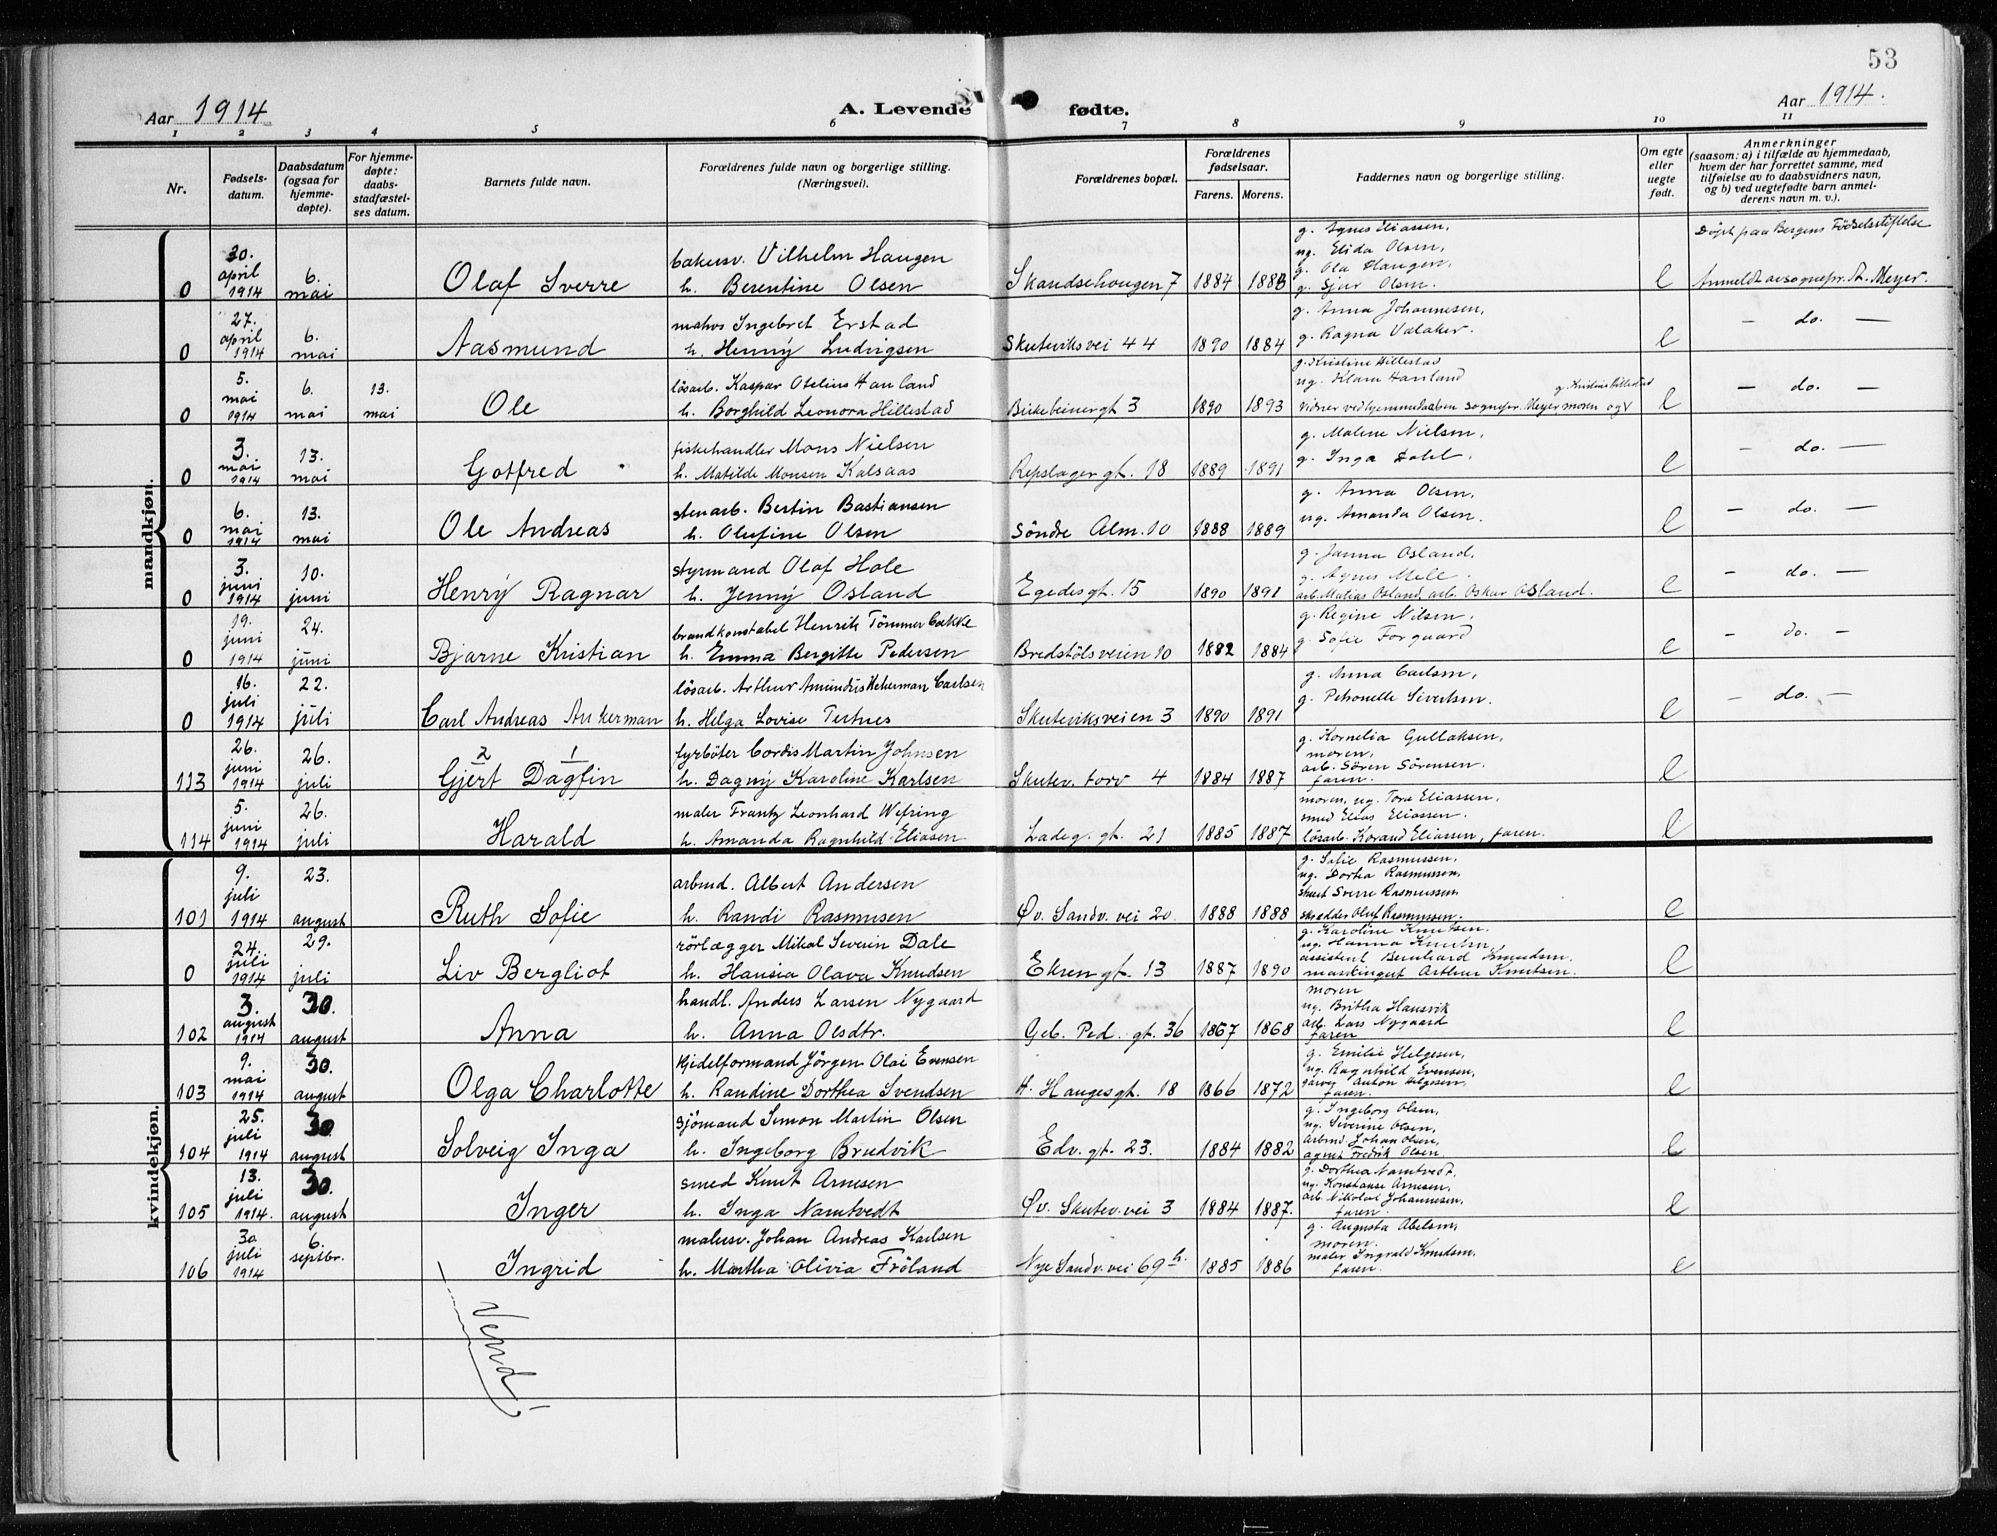 53
Aar 1914
A. Levende fødte.
Aar 1914.
1 2 3 4 5 6 7 8 9 10 11
Nr.
Fødsels-
datum.
Daabsdatum
(ogsaa for
hjemme-
døpte).
For hjemme-
døpte:
daabs-
stadfæstel-
ses datum.
Barnets fulde navn.
Forældrenes fulde navn og borgerlige stilling.
(Næringsvei).
Forældrenes bopæl.
Forældrenes
fødselsaar.
Farens. Morens.
Faddernes navn og borgerlige stilling.
Om egte
eller
uegte
født.
Anmerkninger
(saasom: a) i tilfælde av hjemmedaab,
hvem der har forrettet samme, med
tilføielse av to daabsvidners navn,
og b) ved uegtefødte barn anmel-
derens navn m. v.).
mandkjøn.
0 30. april 1914 6. mai Olaf Sverre
bakersv. Vilhelm Haugen
h. Berentine Olsen
Skandsehougen 7 1884 1883
g. Agnes Eliassen,
ug. Elida Olsen,
g. Ola Haugen,
g. Sjur Olsen.
e
Døpt paa Bergens Fødselsstiftelse
Anmeldt av sognepr. Th. Meyer.
0 27. april 1914 6. mai Aasmund
matros Ingebret Erstad
h. Henny Ludvigsen
Skuteviksvei 44 1890 1884
g. Anna Johannesen,
g. Ragna Valaker.
e
- do. -
0 5. mai 1914 6. mai 13. mai Ole
løsarb. Kaspar Otelius Hauland
h. Borghild Leonora Hillestad
Birkebeinergt 3 1890 1893
g. Kristine Hillestad
ug. Klara Hauland
vidner ved hjemmedaaben sognepr. Meyer moren og
e
- do. -
0 3. mai 1914 13. mai Gotfred
fiskehandler Mons Nielsen
h. Matilde Monsen Kalsaas
Repslagergt. 18 1889 1891
g. Malene Nielsen,
g. Inga Dahl.
e
- do. -
0 6. mai 1914 13. mai Ole Andreas
stenarb. Bertin Bastiansen
h. Olufine Olsen
Söndre Alm. 10 1888 1889
g. Anna Olsen,
ug. Amanda Olsen.
e
- do. -
0 3. juni 1914 10. juni Henry Ragnar
styrmand Olaf Hole
h. Jenny Osland
Egedesgt. 15 1890 1891
g. Janna Osland,
g. Agnes Mele.
arb. Matias Osland, arb. Oskar Osland.
e
- do. -
0 19. juni 1914 24. juni Bjarne Kristian
brandkonstabel Henrik Tömmerbakke
h. Emma Bergitte Pedersen
Bredstölsveien 10 1882 1884
g. Regine Nilsen,
g. Sofie Forgaard
e
- do. -
0 16. juli 1914 22. juli Carl Andreas Ankerman
løsarb. Arthur Amundus Ankerman Carlsen
h. Helga Lovise Tertnes
Skuteviksveien 3 1890 1891
g. Anna Carlsen,
g. Petronelle Sivertsen.
e
- do. -
113 26. juni 1914 26. juli 2 1
Gjert Dagfin
fyrböter Cordts Martin Johnsen
h. Dagny Karoline Karlsen
Skutev. torv 4 1884 1887
g. Kornelia Gullaksen,
moren,
arb. Søren Sørensen
faren.
e
114 5. juni 1914 26. juli Harald
maler Frantz Leonhard Wefring
h. Amanda Ragnhild Eliasen
Ladeg. gt. 21 1885 1887
moren, ug. Tora Eliassen,
smed Elias Eliassen,
løsarb. Konrad Eliassen, faren.
e
kvindekjøn.
101 9. juli 1914 23. august Ruth Sofie
arbmd. Albert Andersen
h. Randi Rasmusen
Øv. Sandv. vei 20. 1888 1888
g. Sofie Rasmussen,
ug. Dortea Rasmussen,
Sverre Rasmussen
skrædder Oluf Rasmussen.
e
0 24. juli 1914 29. juli Liv Bergliot
rörlægger Mikal Severin Dale
h. Hansia Olava Knudsen
Ekrengt. 13 1887 1890
g. Karoline Knutsen.
ug. Hanna Knutsen
assistent Bernhard Knudsen.
maskingut Arthur Knutsen.
e
102 3. august 1914 30. august Anna
handl. Anders Larsen Nygaard
h. Anna Olsdtr.
Geb. Ped. gt. 36 1867 1868
moren
ug. Britha Hausvik
arb. Lars Nygaard
faren
e
103 9. mai 1914 30. august Olga Charlotte
kjedelformand Jörgen Olai Evensen
h. Randine Dorthea Svendsen
H. Haugesgt. 18 1866 1872
g. Emilie Helgesen,
ug. Ragnhild Evensen,
Anton Helgesen,
faren.
e
104 25. juli 1914 30 august Solveig Inga
sjömand Simon Martin Olsen
h. Ingeborg Brudvik
Edv. gt. 23. 1884 1882
g. Ingeborg Olsen,
ug. Severine Olsen,
arbmd. Johan Olsen,
agent Fredrik Olsen.
e
105 13. juli 1914. 30. august Inger
smed Knut Arnesen
h. Inga Namtvedt
Øv. Skutev. vei 3 1884 1887.
g. Dorthea Namtvedt,
ug. Konstanse Arnesen,
arb. Nikolai Johannesen,
faren.
e
106 30 juli 1914 6. septbr. Ingrid
malersv. Johan Andreas Karlsen
h. Martha Olivia Fröland
Nye Sandv. vei 69 h. 1885 1886
g. Augusta Abelsen,
moren.
maler Ingvald Knudsen,
faren.
e
Vend!